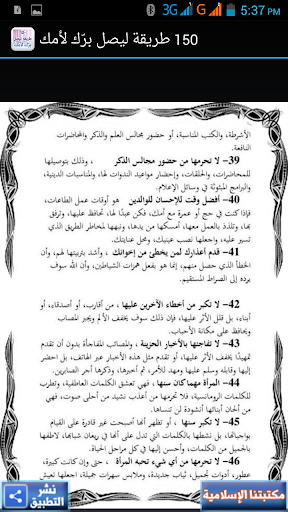 3G G 5:37 PM
150 طريقة ليصل برّك لأمك
الأشرطة، والكتب المناسبة، أو حضور مجالس العلم والذكر والمحاضرات
النافعة.
39– لا تحرمها من حضور مجالس الذكر ، وذلك بتوصيلها
للمحاضرات، والحلقات، وإحضار مواعيد الندوات لها، والمناسبات الدينية،
والبرامج المبثوثة في وسائل الإعلام.
40– أفضل وقت للإحسان للوالدين هو أوقات عمل الطاعات،
فإذا كنت في حج أو عمرة مع أمك، فكن عبدًا لها، تحافظ عليها، وترفق
بها، وتتلذذ بالعمل معها، أمسكها من يدها، ونبهها لمخاطر الطريق الذي
تسير عليه، واجعلها نصب عينيك، ومحل عنايتك.
41– قدم أعذارك لمن يخطئ من إخوانك ، أشد بتربيتها لهم، وأن
الخطأ الذي حصل منهم، إنما هو بفعل همزات الشياطين، وأن الله سوف
يرده إلى الصراط المستقيم.
42– لا تكبر من أخطاء الآخرين عليها ، من أقارب، أو أصدقاء، أو
أبناء، بل قلل الأثر عليها، فإن ذلك سوف يخفف الألم ويجبر المصاب
ويحافظ على مكانة الأحباب.
43– لا تفاجئها بالأخبار الحزينة ، والمصائب المفاجأة بدون أن تقدم
تمهيدًا يخفف الأثر عليها، أو تقدم مثل هذه الأخبار عبر الهاتف، بل احضر
إليها وقدم وسلم عليها ومهد للأمر، ثم أخبرها، وذكرها أجر الصابرين.
44– المرأة مهما كان سنها ، فهي تعشق الكلمات العاطفية، وتطرب
للكلمات الرومانسية، فلا تحرمها من أعذب نشيد من أحلى صوت، فهي
من ألحان أبنائها أنشودة لن تنساها.
45– لا تكبر سنها ، أو تظهر أنها أصبحت غير قادرة على القيام
بواجباتها، بل نشطها بالكلمات التي تدل على أنها في ريعان الشباب.
46– لا تحرمها من أي شيء تحبه المرأة ، حتى وإن كانت كبيرة،
عطور، أدوات تجميل، ثياب جديدة، وملابس سهرات جميلة، اجعلها تعش
نشر التطبيق
مكتبتنا الإسلامية